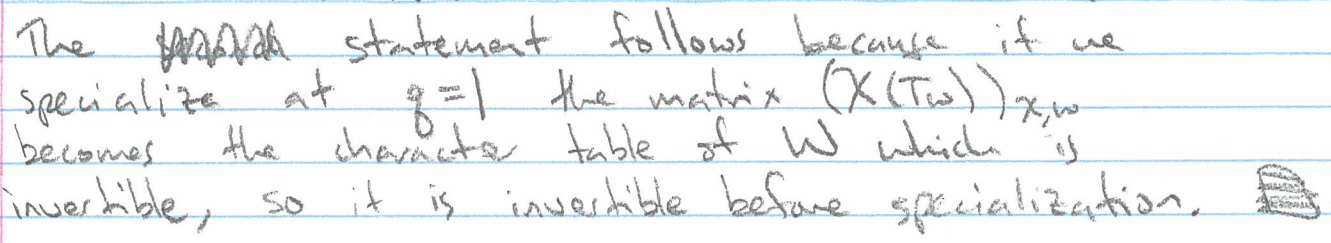 The statement follows because if we
specialize at q=1 the matrix (χ(Tw))χ,w
becomes the character table of W which is
invertible, so it is invertible before specialization.